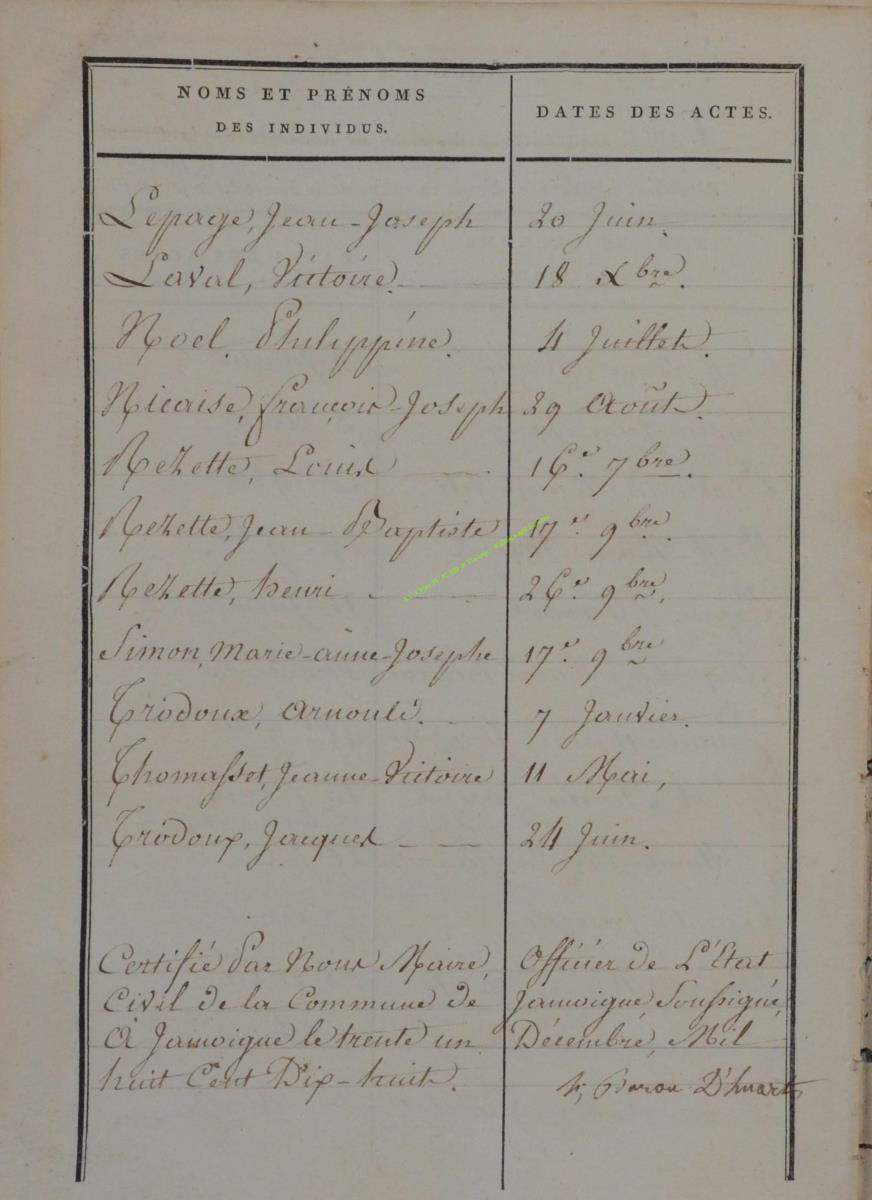 NOMS ET PRÉNOMS
DES INDIVIDUS.
DATES DES ACTES.
Lepage, Jean-Joseph 20 Juin.
Laval, Victoire. 18 Xbre.
Noel, Philippine. 4 Juillet.
Nicaise, françois-Joseph 29 Août.
Rezette, Louis 16e. 7bre.
Rezette, Jean-Baptiste 17e. 9bre.
Rezette, henri 26e. 9bre.
Simon, Marie-anne-Josephe 17e. 9bre
Trodoux, arnould. 7 Janvier.
Thomasset, Jeanne-Victoire 11 Mai,
Trodoux, Jacques 24 Juin.
Certifié Par Nous Maire, Officier de L'Etat
Civil de la Commune de Jamoigne, Soussigné,
A Jamoigne le trente un Décembre, Mil
huit Cent Dix-huit.
Baron D'huart